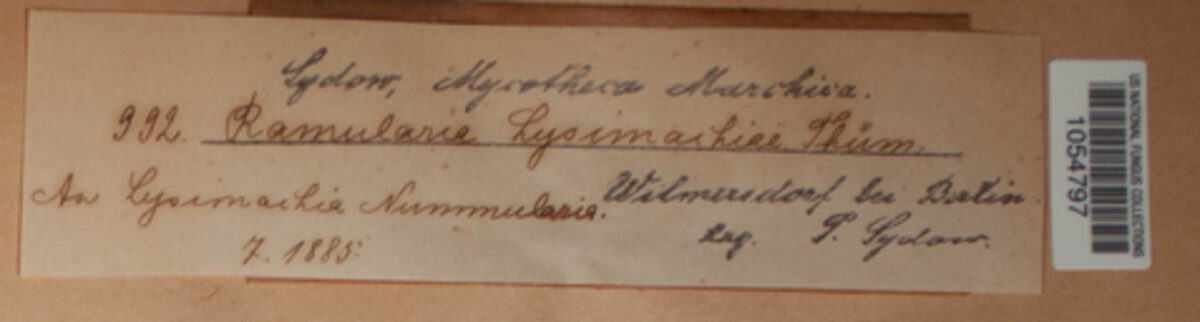 Sydow, Mycotheca Marchica.
992. Ramularia Lysimachiae Thüm.
An Lysimachia Nummularia.
Wilmersdorf bei Berlin.
7. 1885.
leg. P. Sydow.
US NATIONAL FUNGUS COLLECTIONS
1054797